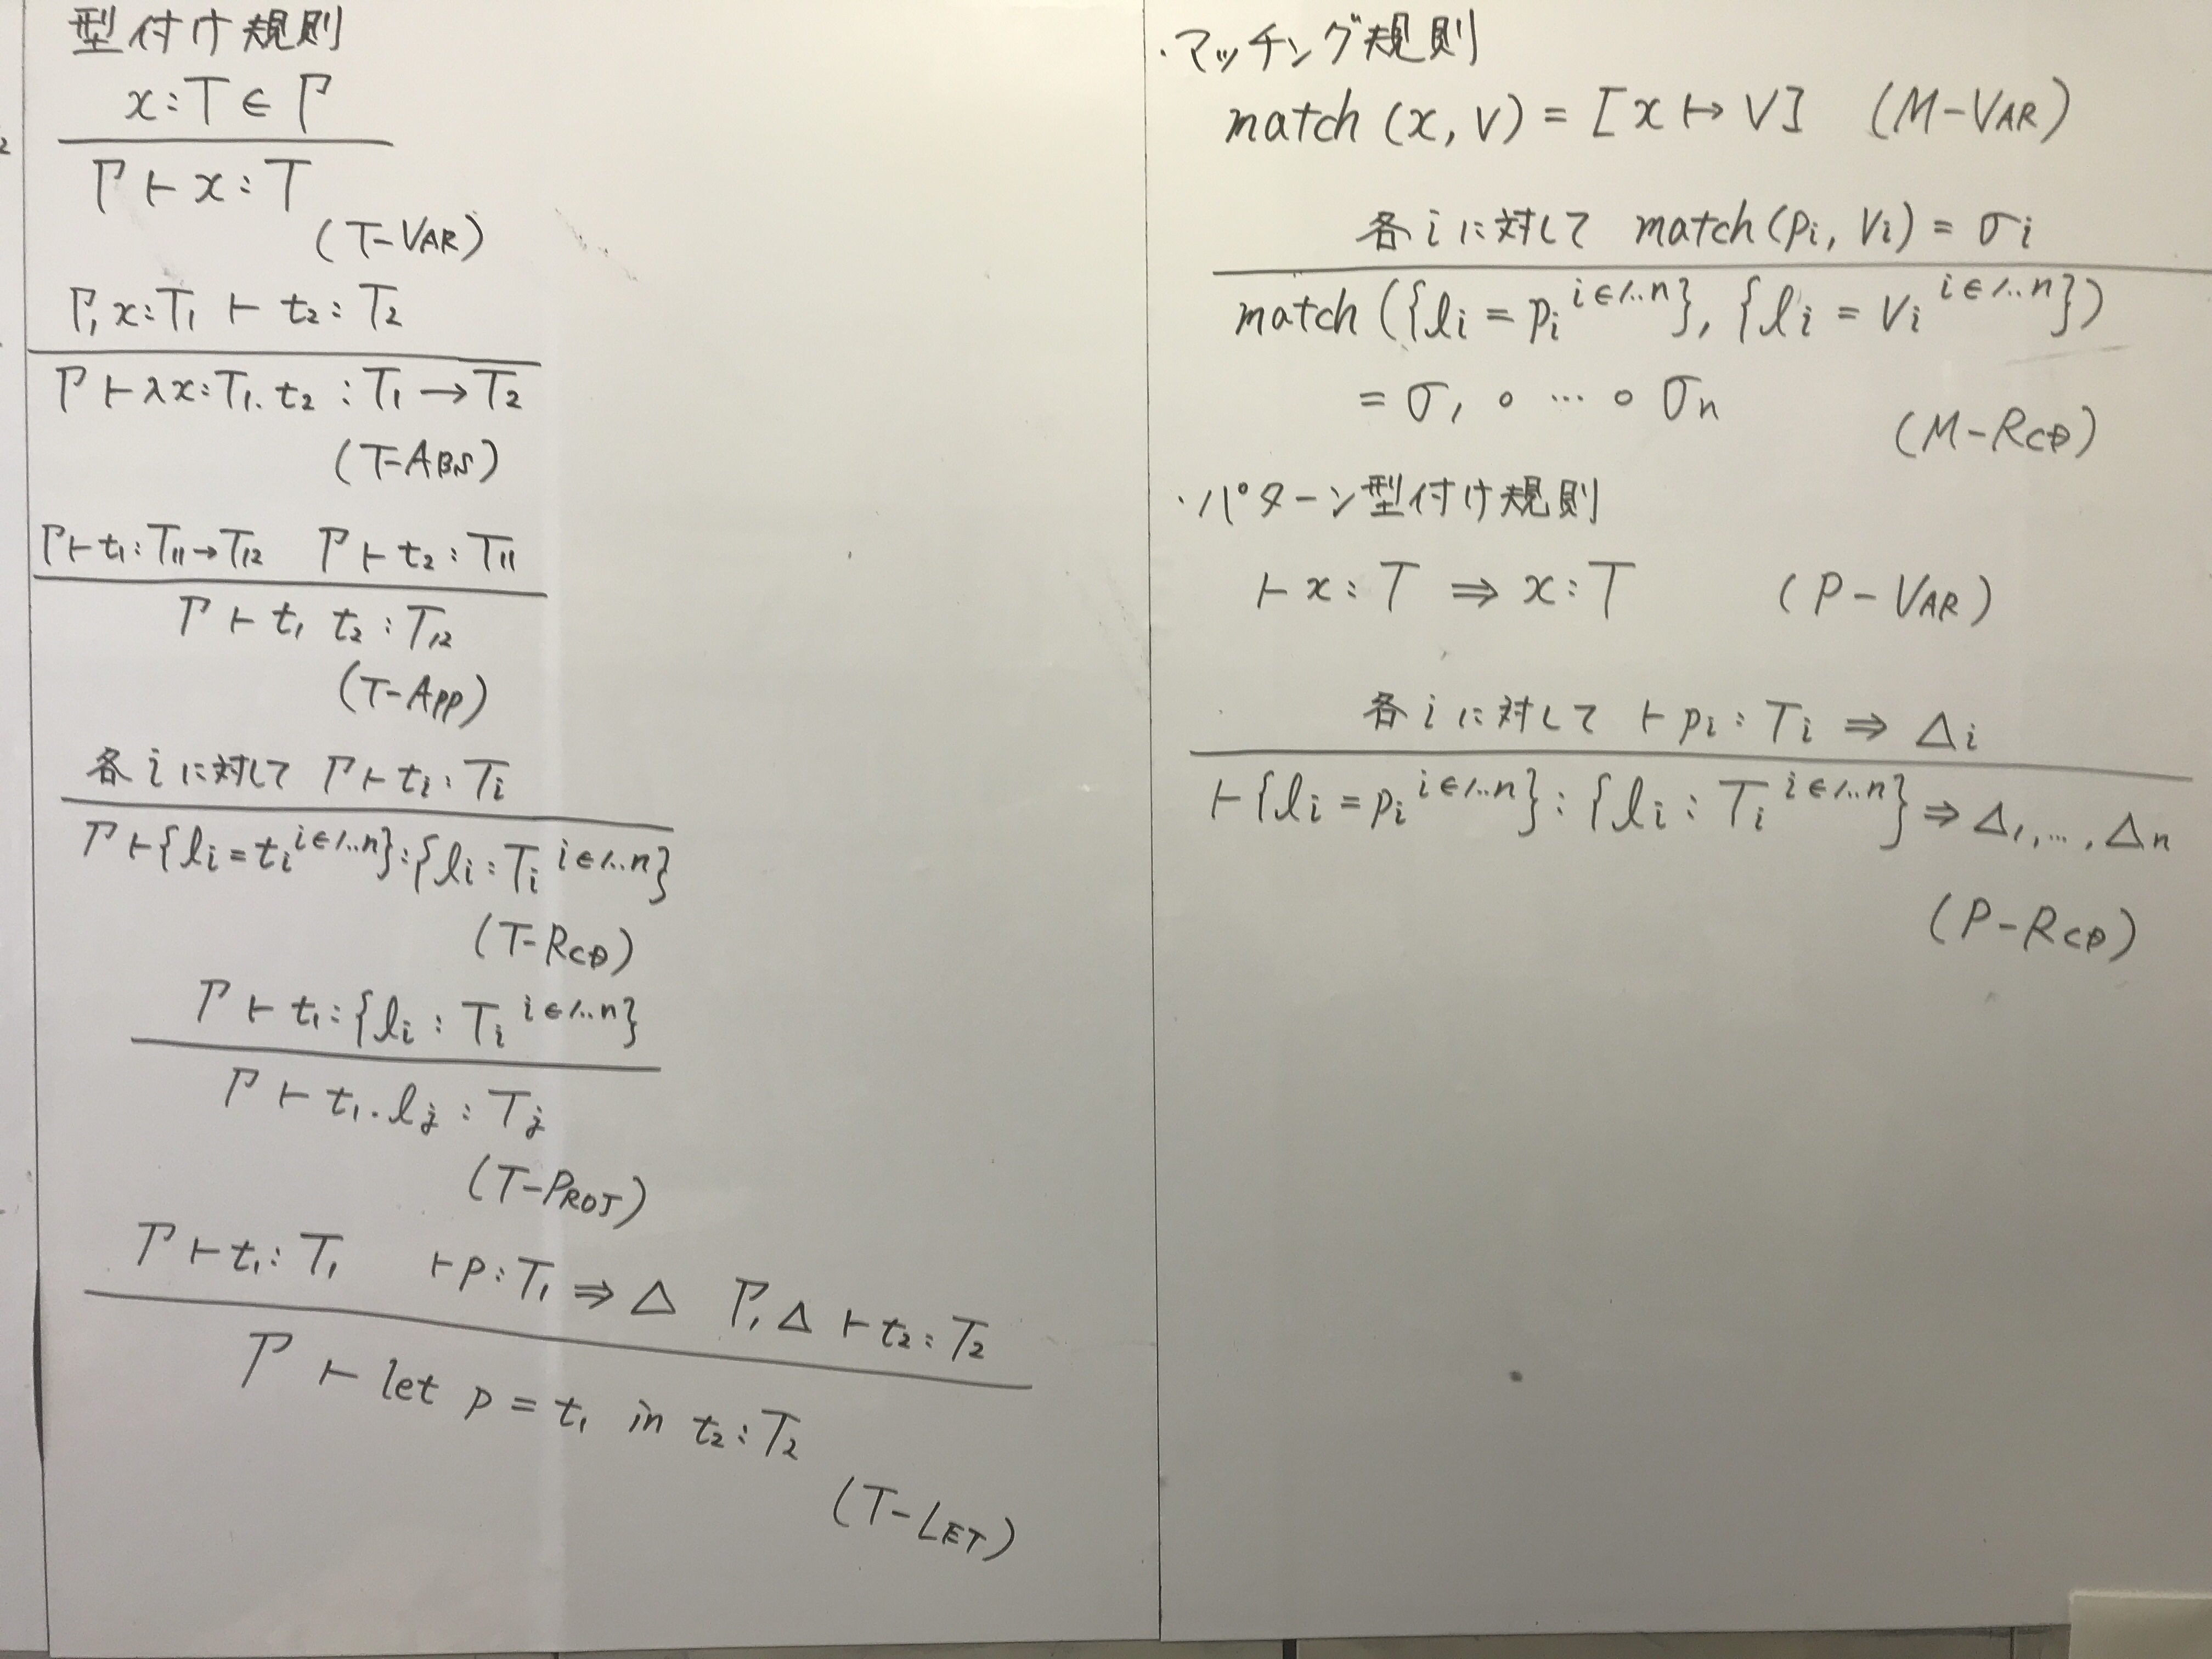 型付け規則
x:T∈Γ
Γ⊢x:T
(T-VAR)
Γ, x:T₁ ⊢ t₂:T₂
Γ⊢λx:T₁. t₂ : T₁→T₂
(T-ABS)
Γ⊢t₁:T₁₁→T₁₂ Γ⊢t₂:T₁₁
Γ⊢t₁ t₂:T₁₂
(T-APP)
各iに対して Γ⊢tᵢ:Tᵢ
Γ⊢{lᵢ=tᵢ^{i∈1..n}}:{lᵢ:Tᵢ^{i∈1..n}}
(T-RCD)
Γ⊢t₁:{lᵢ:Tᵢ^{i∈1..n}}
Γ⊢t₁.lⱼ:Tⱼ
(T-PROJ)
Γ⊢t₁:T₁ ⊢p:T₁⇒Δ Γ,Δ⊢t₂:T₂
Γ⊢let p=t₁ in t₂:T₂
(T-LET)
・マッチング規則
match (x, v) = [x↦v] (M-VAR)
各iに対して match(pᵢ, vᵢ) = σᵢ
match ({lᵢ=pᵢ^{i∈1..n}}, {lᵢ=vᵢ^{i∈1..n}})
= σ₁ ∘ … ∘ σₙ
(M-RCD)
・パターン型付け規則
⊢x:T ⇒ x:T (P-VAR)
各iに対して ⊢pᵢ:Tᵢ ⇒ Δᵢ
⊢{lᵢ=pᵢ^{i∈1..n}}:{lᵢ:Tᵢ^{i∈1..n}}⇒Δ₁,…,Δₙ
(P-RCD)